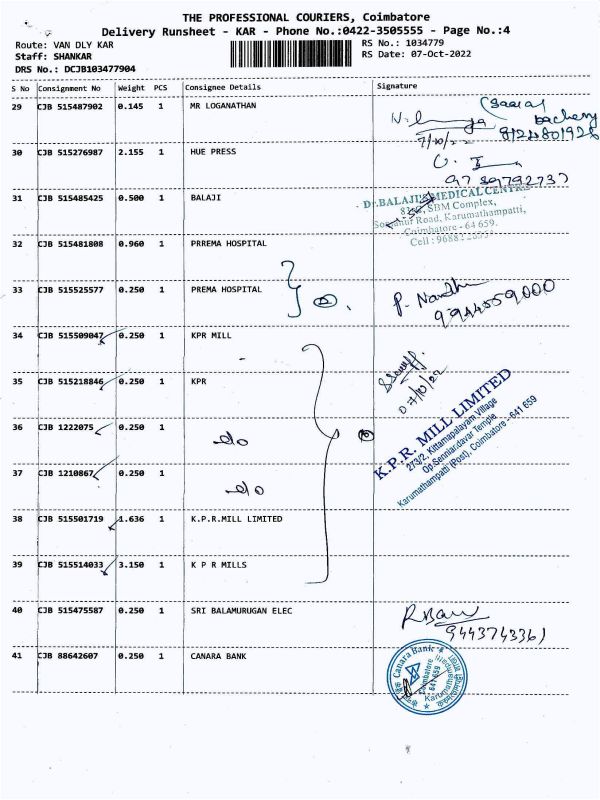 THE PROFESSIONAL COURIERS, Coimbatore
Delivery Runsheet - KAR - Phone No.:0422-3505555 - Page No.:4
Route: VAN DLY KAR RS No.: 1034779
Staff: SHANKAR RS Date: 07-Oct-2022
DRS No.: DCJB103477904
S No Consignment No Weight PCS Consignee Details Signature
29 CJB 515487902 0.145 1 MR LOGANATHAN
7/10/22
30 CJB 515276987 2.155 1 HUE PRESS
9789792737
31 CJB 515485425 0.500 1 BALAJI
Dr.BALAJI'S MEDICAL CENTRE
SBM Complex,
Road, Karumathampatti,
Coimbatore - 64 659.
32 CJB 515481808 0.960 1 PRREMA HOSPITAL
33 CJB 515525577 0.250 1 PREMA HOSPITAL
9944559000
34 CJB 515509047 0.250 1 KPR MILL
35 CJB 515218846 0.250 1 KPR
07/10/22
36 CJB 1222075 0.250 1
do
K.P.R. MILL LIMITED
273/2, Kittampalayam Village
Op.Senniandavar Temple
Karumathampatti (Post), Coimbatore - 641 659
37 CJB 1210867 0.250 1
do
38 CJB 515501719 1.636 1 K.P.R.MILL LIMITED
39 CJB 515514033 3.150 1 K P R MILLS
40 CJB 515475587 0.250 1 SRI BALAMURUGAN ELEC
9443743361
41 CJB 88642607 0.250 1 CANARA BANK
Canara Bank
Coimbatore
641 659